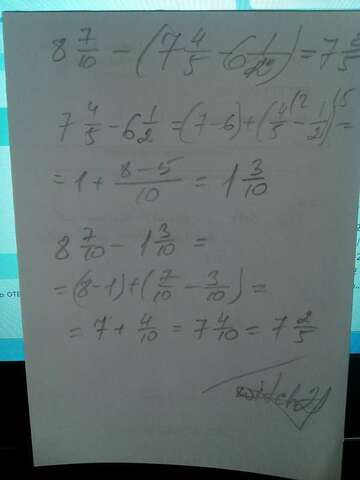 8 7/10 - (7 4/5 - 6 1/2) = 7 2/5
7 4/5 - 6 1/2 = (7-6) + (4/5 (2 - 1/2) (5 =
= 1 + 8-5/10 = 1 3/10
8 7/10 - 1 3/10 =
= (8-1) + (7/10 - 3/10) =
= 7 + 4/10 = 7 4/10 = 7 2/5